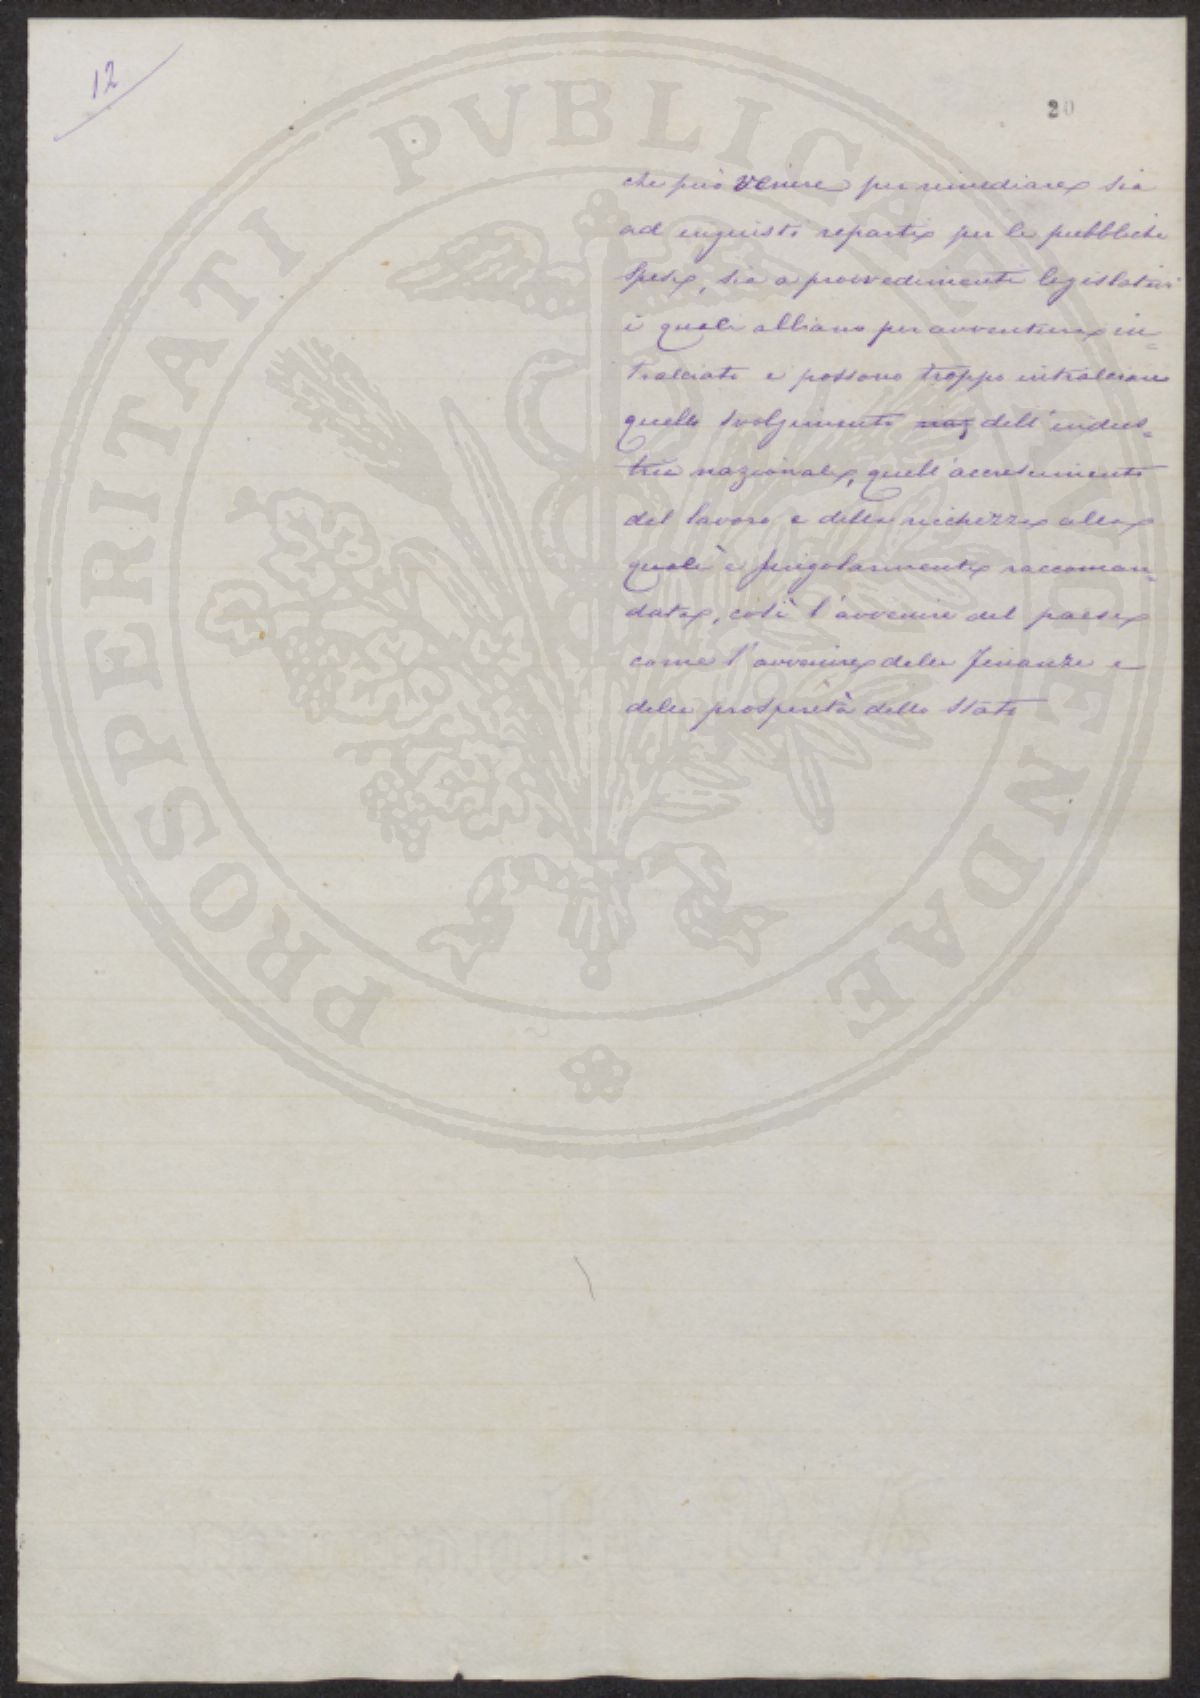 12
20
che può venire per rimediare sia
ad ingiusti reparti per le pubbliche
spese, sia a provvedimenti legislativi
i quali abbiano per avventura in=
tralciato e possono troppo intralciare
quello svolgimento naz dell'indus=
tria nazionale, quell'accrescimento
del lavoro e della ricchezza alla
quale è singolarmente raccoman=
data, così l'avvenire del paese
come l'avvenire delle finanze e
della prosperità dello Stato
PROSPERITATI PVBLICAE AVGENDAE